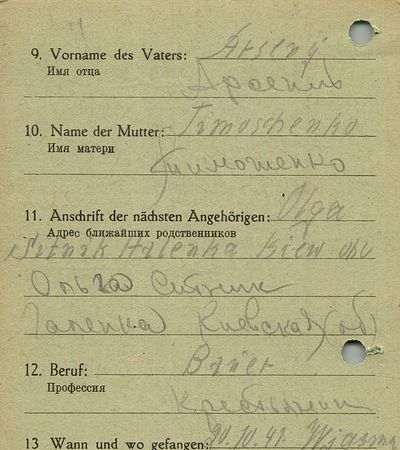 9. Vorname des Vaters: Arseny
Имя отца
Арсений
10. Name der Mutter: Timoschenko
Имя матери
Тимошенко
11. Anschrift der nächsten Angehörigen: Olga
Адрес ближайших родственников
Sitnik Halenka Kiew
Ольга Ситник
Галенка Киевская (об)
12. Beruf: Bauer
Профессия
Крестьянин
13 Wann und wo gefangen: 20.10.41. Wjasma